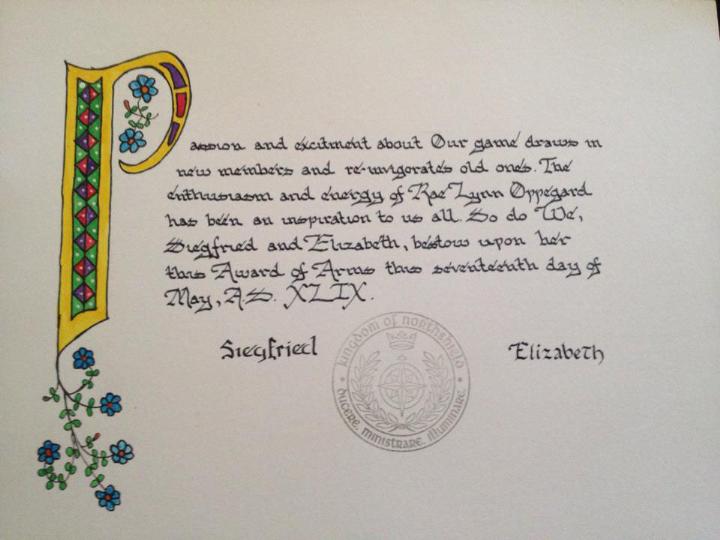 Passion and excitment about Our game draws in
new members and re-invigorates old ones. The
enthusiasm and energy of Rae Lynn Oppegard
has been an inspiration to us all. So do We,
Siegfried and Elizabeth, bestow upon her
this Award of Arms this seventeenth day of
May, A.S. XLIX.
Siegfried
Elizabeth
Kingdom of Northshield
Ducere, Ministrare, Illuminare